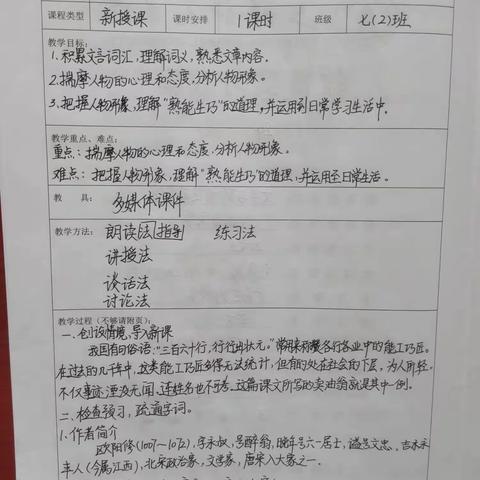 课程类型 新授课 课时安排 1课时 班级 七(2)班
教学目标:
1.积累文言词汇,理解词义,熟悉文章内容。
2.揣摩人物的心理和态度,分析人物形象。
3.把握人物形象,理解"熟能生巧"的道理,并运用到日常学习生活中。
教学重点、难点:
重点:揣摩人物的心理和态度,分析人物形象。
难点:把握人物形象,理解"熟能生巧"的道理,并运用至日常生活。
教 具: 多媒体课件
教学方法: 朗读法 指导 练习法
讲授法
谈话法
讨论法
教学过程(不够请附页):
一.创设情境,导入新课
我国有句俗语:"三百六十行,行行出状元。"常用来称赞各行各业中的能工巧匠。
在过去的几千年中,这类能工巧匠多得无法统计,但有的处在社会的下层,为人所轻,
不仅事迹湮没无闻,连姓名也不可考。这篇课文所写的卖油翁就是其中一例。
二.检查预习,疏通字词。
1.作者简介
欧阳修(1007~1072),字永叔,号醉翁,晚年号六一居士,谥号文忠。吉水永
丰人(今属江西),北宋政治家,文学家,唐宋八大家之一.